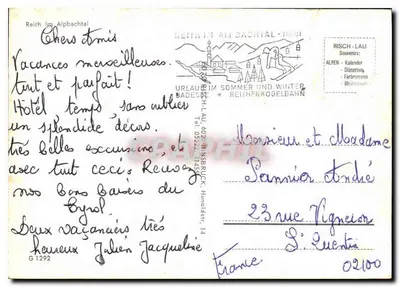 Reith im Alpbachtal
REITH IM ALPBACHTAL · TIROL
URLAUB IM SOMMER UND WINTER
BADESEE REITHERKOGELBAHN
RISCH-LAU
Souvenirs
ALPEN - Kalender
Chers Amis
Vacances merveilleuses.
tout et parfait!
Hotel, temps, sans oublier
un splendide décors.
très belles excursions, et
avec tout ceci, Recevez
nos Bons Baisers du
Tyrol.
Deux vacanciers très
heureux Julien Jacqueline
G 1292
RISCH-LAU, 6020 INNSBRUCK
Monsieur et Madame
Pannier André
23 rue Vigneron
St Quentin
02100
France.